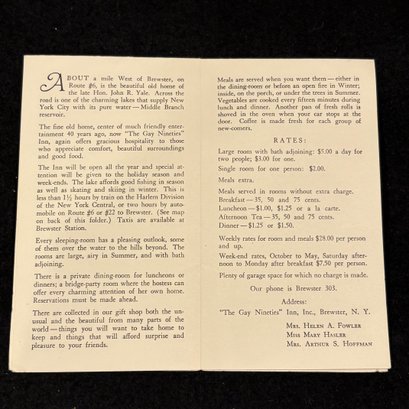 ABOUT a mile West of Brewster, on
Route #6, is the beautiful old home of
the late Hon. John R. Yale. Across the
road is one of the charming lakes that supply New
York City with its pure water — Middle Branch
reservoir.
The fine old home, center of much friendly enter-
tainment 40 years ago, now "The Gay Nineties"
Inn, again offers gracious hospitality to those
who appreciate comfort, beautiful surroundings
and good food.
The Inn will be open all the year and special at-
tention will be given to the holiday season and
week-ends. The lake affords good fishing in season
as well as skating and skiing in winter. This is
less than 1½ hours by train on the Harlem Division
of the New York Central, or two hours by auto-
mobile on Route #6 or #22 to Brewster. (See map
on back of this folder.) Taxis are available at
Brewster Station.
Every sleeping-room has a pleasing outlook, some
of them over the water to the hills beyond. The
rooms are large, airy in Summer, and with bath
adjoining.
There is a private dining-room for luncheons or
dinners; a bridge-party room where the hostess can
offer every charming attention of her own home.
Reservations must be made ahead.
There are collected in our gift shop both the un-
usual and the beautiful from many parts of the
world — things you will want to take home to
keep and things that will afford surprise and
pleasure to your friends.
Meals are served when you want them — either in
the dining-room or before an open fire in Winter;
inside, on the porch, or under the trees in Summer.
Vegetables are cooked every fifteen minutes during
lunch and dinner. Another pan of fresh rolls is
shoved in the oven when your car stops at the
door. Coffee is made fresh for each group of
new-comers.
RATES:
Large room with bath adjoining: $5.00 a day for
two people; $3.00 for one.
Single room for one person: $2.00.
Meals extra.
Meals served in rooms without extra charge.
Breakfast — 35, 50 and 75 cents.
Luncheon — $1.00, $1.25 or a la carte.
Afternoon Tea — 35, 50 and 75 cents.
Dinner — $1.25 or $1.50.
Weekly rates for room and meals $28.00 per person
and up.
Week-end rates, October to May, Saturday after-
noon to Monday after breakfast $7.50 per person.
Plenty of garage space for which no charge is made.
Our phone is Brewster 303.
Address:
"The Gay Nineties" Inn, Inc., Brewster, N. Y.
Mrs. Helen A. Fowler
Miss Mary Hasler
Mrs. Arthur S. Hoffman